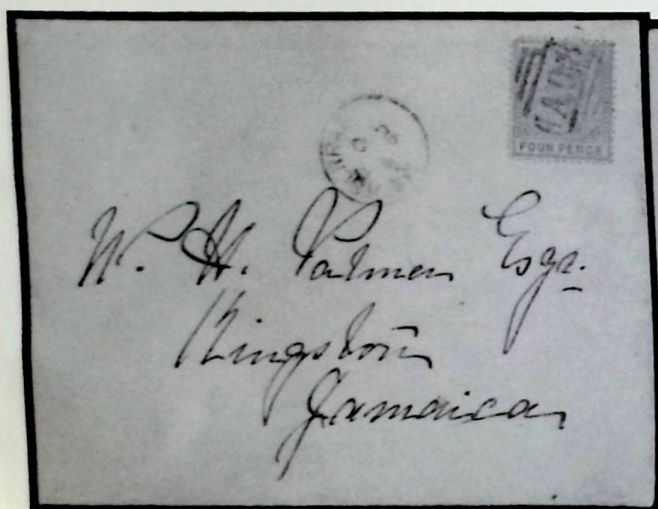 FOUR PENCE
W. H. Palmer Esqr.
Kingston
Jamaica